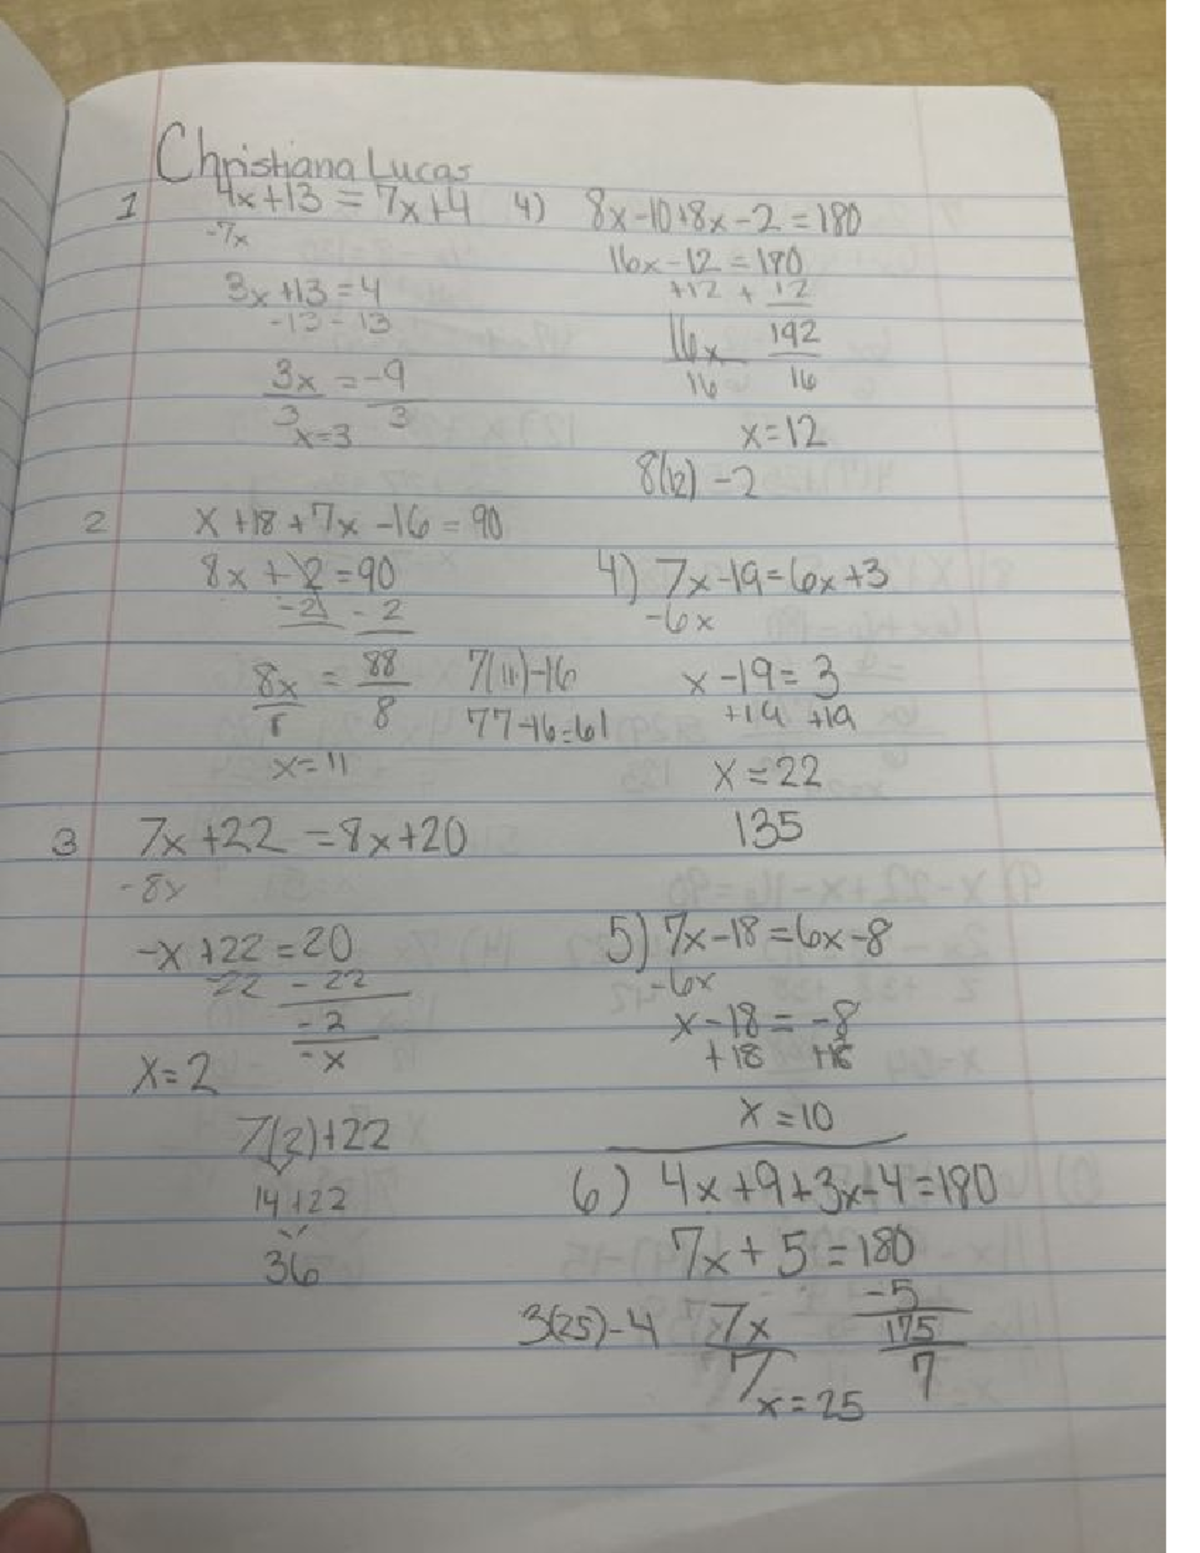 Christiana Lucas
1 4x+13 = 7x+4
-7x
3x+13=4
-13 -13
3x = -9
3 3
x=3
2 x+18+7x-16=90
8x+2=90
-2 -2
8x = 88
8
x=11
7(11)-16
77-16=61
3 7x+22 =8x+20
-8x
-x+22=20
-22 -22
-2
-x
x=2
7(2)+22
14+22
36
4) 8x-10+8x-2=180
16x-12=180
+12 + 12
16x 192
16 16
x=12
8(12) -2
4) 7x-19=6x+3
-6x
x-19=3
+19 +19
x=22
135
5) 7x-18=6x-8
-6x
x-18= -8
+18 +18
x=10
6) 4x+9+3x-4=180
7x+5=180
-5
3(25)-4 7x 175
7 7
x=25